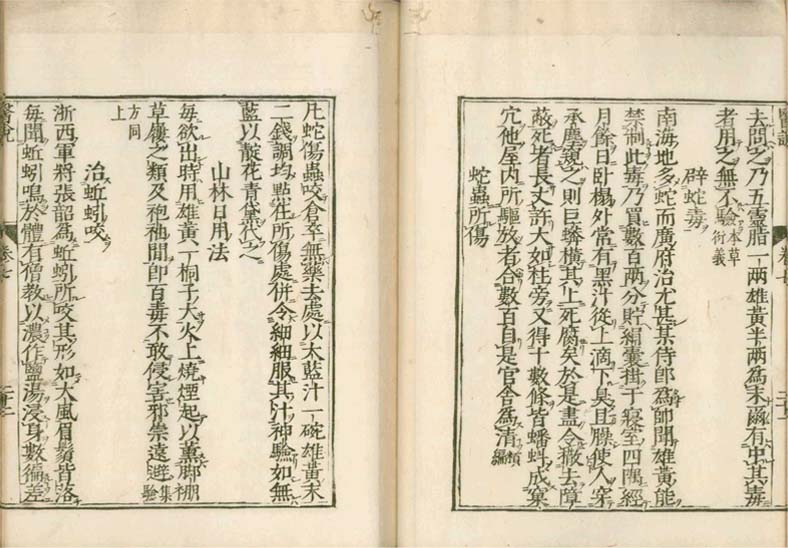 去問之乃五靈脂一兩雄黃半兩為末爾有中其毒
者用之無不驗本草衍義
辟蛇毒
南海地多蛇而廣府治尤甚某侍郎為帥聞雄黃能
禁制此毒乃買數百兩分貯絹囊掛于寢室四隅經
月餘日臥榻外常有黑汁從上滴下臭且臊使人穿
承塵窺之則巨蟒橫其上死腐矣於是盡令撤去障
蔽死者長丈許大如柱旁又得十數條皆蟠蚪成窠
穴他屋內所驅放者合數百自是官舍為清類編
蛇蟲所傷
醫說
卷七
二十二
凡蛇傷蟲咬倉卒無藥去處以大藍汁一碗雄黃末
二錢調均點在所傷處併令細細服其汁神驗如無
藍以靛花青黛代之
山林日用法
每欲出時用雄黃一桐子大火上燒煙起以薰脚棚
草屨之類及袍袖間即百毒不敢侵害邪祟遠避集驗
方同上
治蚯蚓咬
浙西軍將張韶為蚯蚓所咬其形如大風眉鬚皆落
每聞蚯蚓鳴於體有僧教以濃作鹽湯浸身數徧差
醫說
卷七